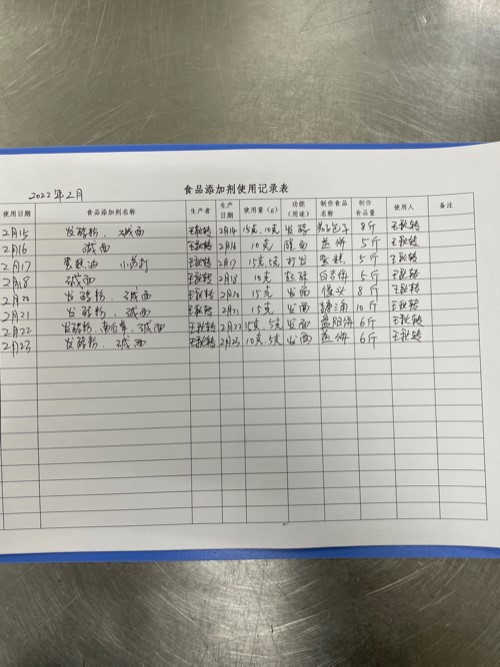 2022年2月
食品添加剂使用记录表
使用日期 食品添加剂名称 生产者 生产日期 使用量(g) 功能(用途) 制作食品名称 制作食品量 使用人 备注
2月15 发酵粉、碱面 王秋转 2月14 15克.10克 发酵 包子 8斤 王秋转
2月16 碱面 王秋转 2月16 10克 醒面 蒸饼 5斤 王秋转
2月17 蛋糕油 小苏打 王秋转 2月17 15克5克 打发 蛋糕 5斤 王秋转
2月18 碱面 王秋转 2月18 10克 起酥 白吉饼 5斤 王秋转
2月20 发酵粉、碱面 王秋转 2月20 15克 发面 馒头 8斤 王秋转
2月21 发酵粉、碱面 王秋转 2月21 15克 发面 糖三角 10斤 王秋转
2月22 发酵粉、碱面 王秋转 2月22 15克、5克 发面 6斤 王秋转
2月23 发酵粉、碱面 王秋转 2月23 10克.5克 发面 蒸饼 6斤 王秋转